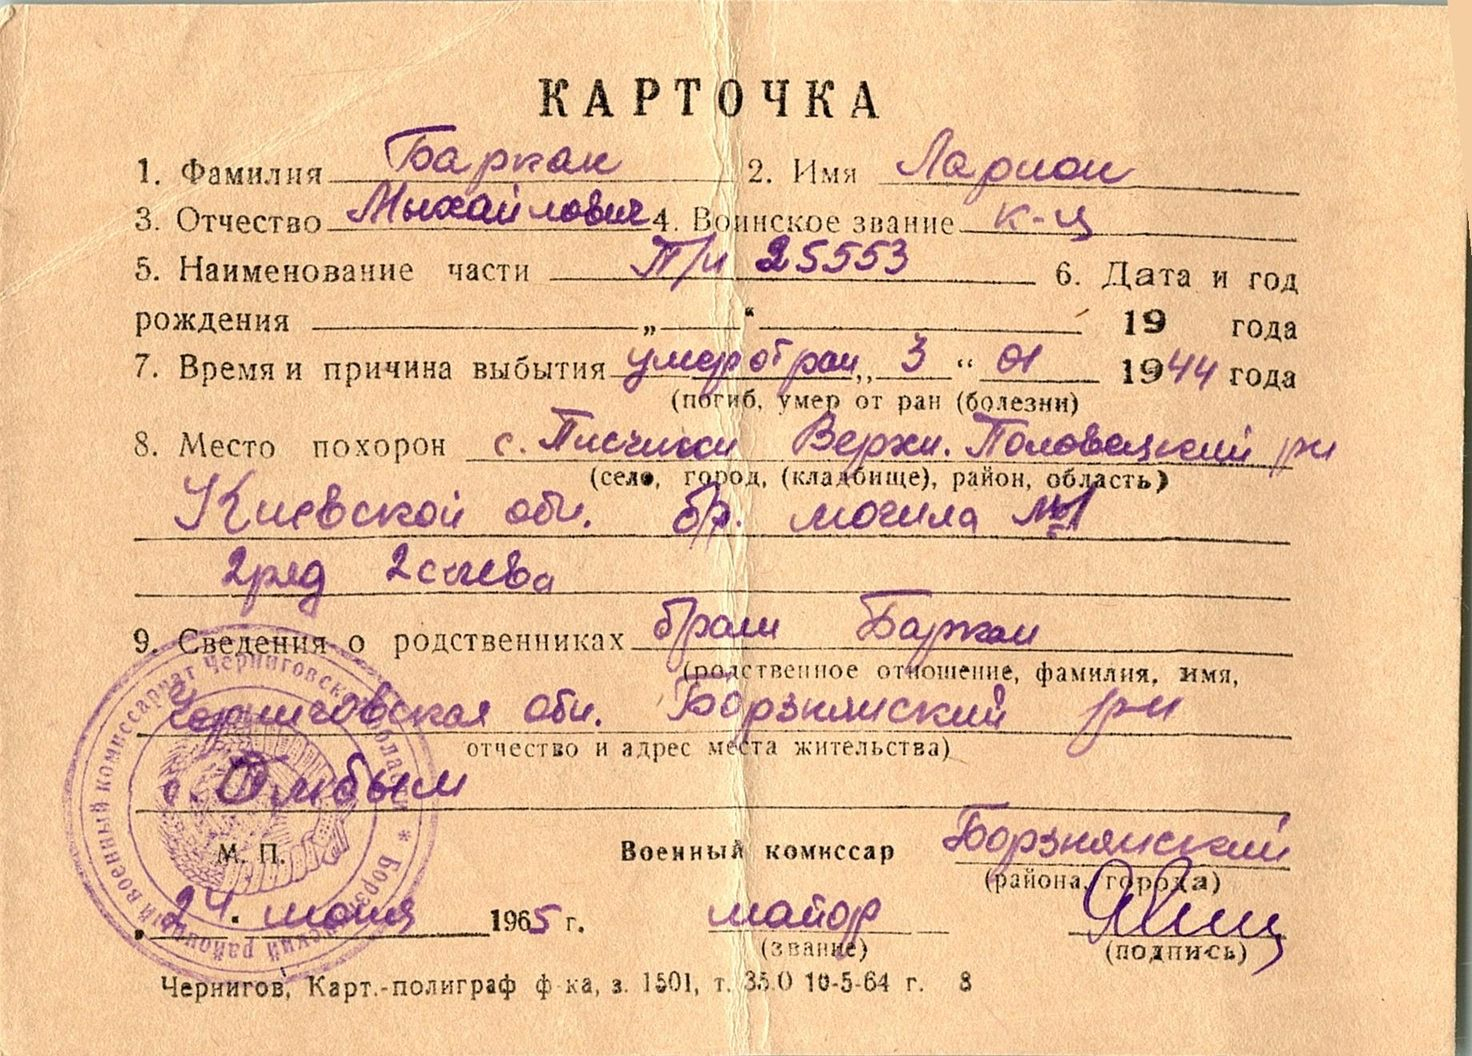 КАРТОЧКА
1. Фамилия Баркан 2. Имя Ларион
3. Отчество Михайлович 4. Воинское звание к-ц
5. Наименование части П/п 25553 6. Дата и год
рождения „ “ 19 года
7. Время и причина выбытия умер от ран „3“ 01 1944 года
(погиб, умер от ран (болезни)
8. Место похорон с. Пищики Верхн. Половецкий рн
(село, город, (кладбище), район, область)
Киевской обл. бр. могила №1
2 ряд 2 слева
9. Сведения о родственниках Баркан
(родственное отношение, фамилия, имя,
Черниговская обл. Борзнянский р-н
отчество и адрес места жительства)
с.
М. П. Военный комиссар Борзнянский
(района, города)
„24“ июня 1965 г. майор
(звание) (подпись)
Чернигов, Карт.-полиграф ф-ка, з. 1501, т. 35.0 10-5-64 г. 8
районный военный комиссариат Черниговской области * Борзнянский